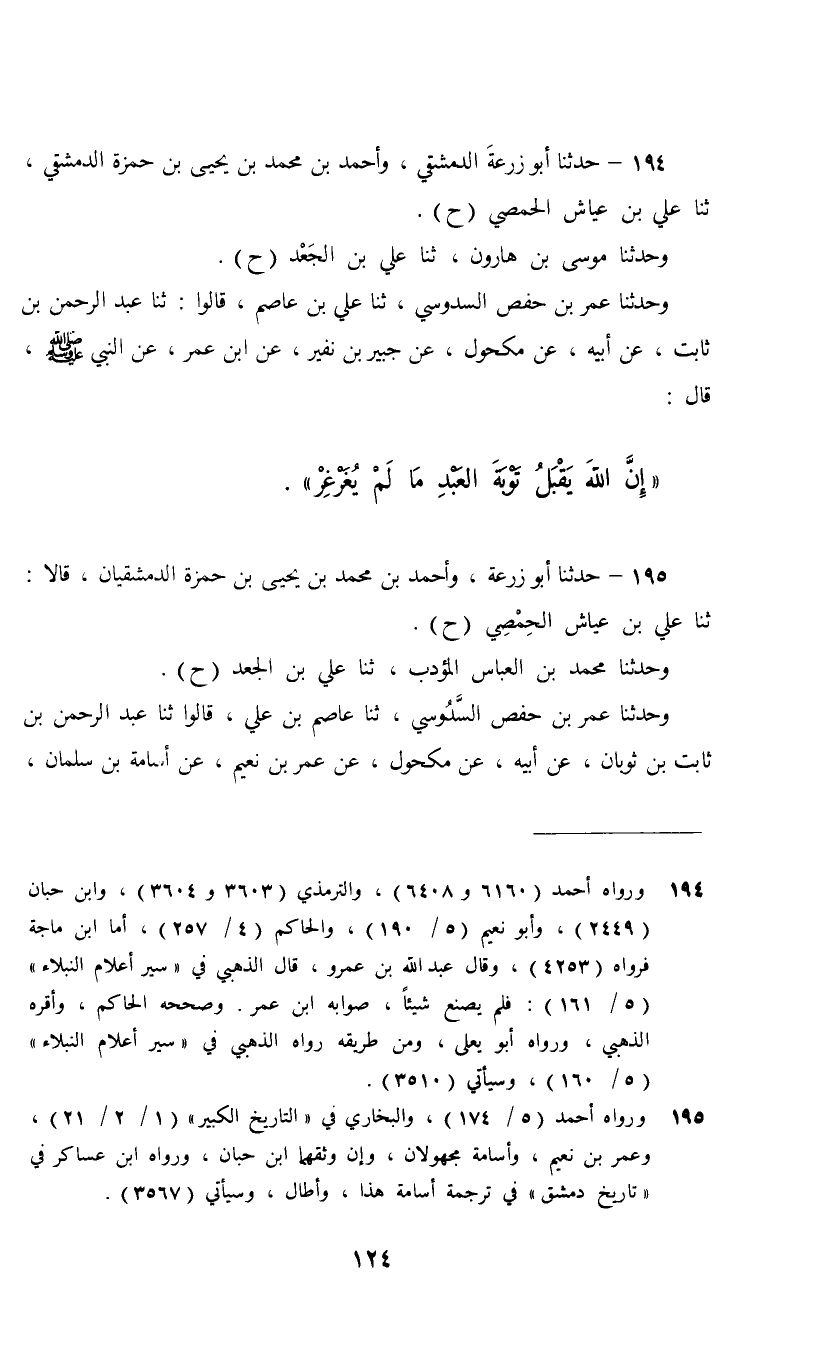 ١٩٤ – حدثنا أبو زرعةَ الدمشقي ، وأحمد بن محمد بن يحيى بن حمزة الدمشقي ،
ثنا علي بن عياش الحمصي (ح) .
وحدثنا موسى بن هارون ، ثنا علي بن الجَعْد (ح) .
وحدثنا عمر بن حفص السدوسي ، ثنا علي بن عاصم ، قالوا : ثنا عبد الرحمن بن
ثابت ، عن أبيه ، عن مكحول ، عن جبير بن نفير ، عن ابن عمر ، عن النبي ﷺ ،
قال :
« إِنَّ اللَّهَ يَقْبَلُ تَوْبَةَ العَبْدِ مَا لَمْ يُغَرْغِرْ » .
١٩٥ – حدثنا أبو زرعة ، وأحمد بن محمد بن يحيى بن حمزة الدمشقيان ، قالا :
ثنا علي بن عياش الحِمْصِي (ح) .
وحدثنا محمد بن العباس المؤدب ، ثنا علي بن الجعد (ح) .
وحدثنا عمر بن حفص السَّدُوسي ، ثنا عاصم بن علي ، قالوا ثنا عبد الرحمن بن
ثابت بن ثوبان ، عن أبيه ، عن مكحول ، عن عمر بن نعيم ، عن أسامة بن سلمان ،
١٩٤ ورواه أحمد (٦١٦٠ و ٦٤٠٨) ، والترمذي (٣٦٠٣ و ٣٦٠٤) ، وابن حبان
(٢٤٤٩) ، وأبو نعيم (٥/ ١٩٠) ، والحاكم (٤/ ٢٥٧) ، أما ابن ماجة
فرواه (٤٢٥٣) ، وقال عبد الله بن عمرو ، قال الذهبي في « سير أعلام النبلاء »
(٥/ ١٦١) : فلم يصنع شيئاً ، صوابه ابن عمر . وصححه الحاكم ، وأقره
الذهبي ، ورواه أبو يعلى ، ومن طريقه رواه الذهبي في « سير أعلام النبلاء »
(٥/ ١٦٠) ، وسيأتي (٣٥١٠) .
١٩٥ ورواه أحمد (٥/ ١٧٤) ، والبخاري في « التاريخ الكبير » (١/ ٢/ ٢١) ،
وعمر بن نعيم ، وأسامة مجهولان ، وإن وثقهما ابن حبان ، ورواه ابن عساكر في
« تاريخ دمشق » في ترجمة أسامة هذا ، وأطال ، وسيأتي (٣٥٦٧) .
١٢٤